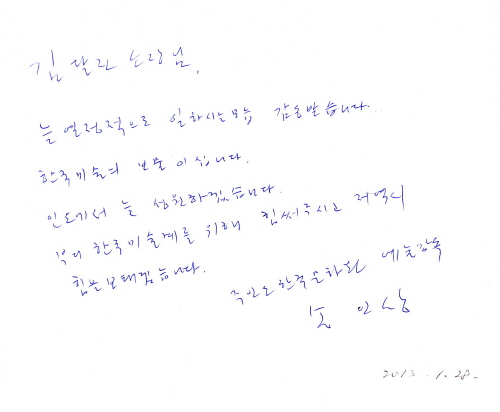 김달진 소장님,
늘 열정적으로 일하시는 모습 감동받습니다.
한국미술의 보물이십니다.
인도에서 늘 성원하겠습니다.
부디 한국미술계를 위해 힘써주시고 저 역시
힘을 보태겠습니다.
주인도한국문화원 예술감독
2013. 1. 28.